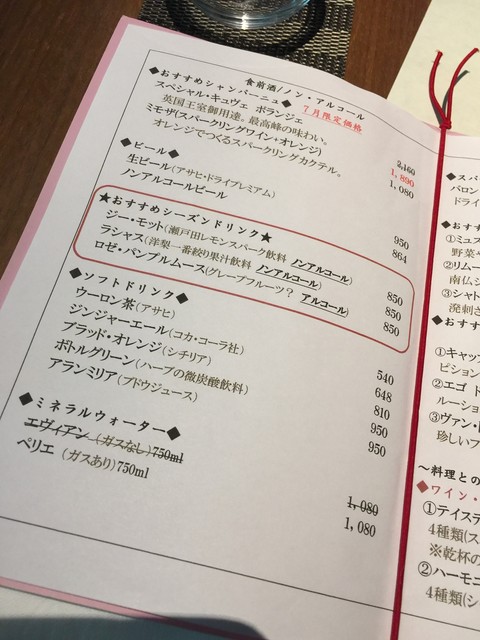 食前酒/ノン・アルコール
◆おすすめシャンパーニュ◆ 7月限定価格
スペシャル・キュヴェ ボランジェ 2,160 1,890
英国王室御用達。最高峰の味わい。
ミモザ(スパークリングワイン+オレンジ) 1,080
オレンジでつくるスパークリングカクテル。
◆ビール◆
生ビール(アサヒ・ドライプレミアム) 950
ノンアルコールビール 864
★おすすめシーズンドリンク★
ジー・モット(瀬戸田レモンスパーク飲料 ノンアルコール) 850
ラシャス(洋梨一番搾り果汁飲料 ノンアルコール) 850
ロゼ・パンプルムース(グレープフルーツ? アルコール) 850
◆ソフトドリンク◆
ウーロン茶(アサヒ) 540
ジンジャーエール(コカ・コーラ社) 648
ブラッド・オレンジ(シチリア) 810
ボトルグリーン(ハーブの微炭酸飲料) 950
アランミリア(ブドウジュース) 950
◆ミネラルウォーター◆
エヴィアン(ガスなし)750ml 1,080
ペリエ(ガスあり)750ml 1,080
◆スパ
バロン
ドライ
◆おす
①ミュス
野菜や
②リムー
南仏シ
③シャト
溌剌さ
◆おすす
①キャッ
ピション
②エゴ ド
ルーショ
③ヴァン・
珍しいブ
～料理との
◆ワイン・
①テイステ
4種類(ス
※乾杯の
②ハーモニ
4種類(シ